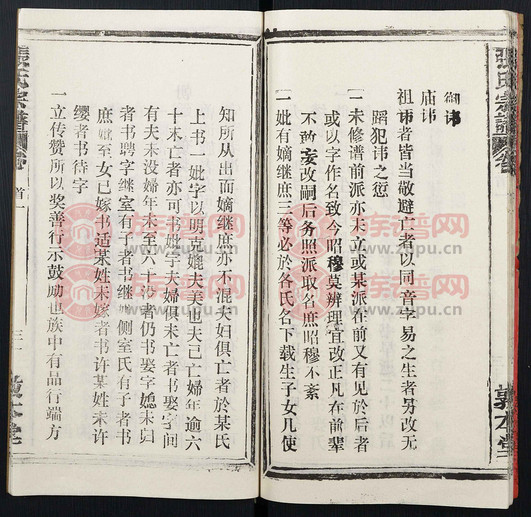 張氏宗譜
御讳
庙讳
祖讳者皆当敬避亡者以同音字易之生者另改无
蹈犯讳之愆
一未修谱前派亦未立或某派在前又有见於后者
或以字作名致今昭穆莫辨理宜改正凡在前辈
不敢妄改嗣后务照派取名庶昭穆不紊
一妣有嫡继庶三等必於各氏名下载生子女几使
敦本堂
知所从出而嫡继庶亦不混夫妇俱亡者於某氏
上书一妣字以明克媲夫美也夫已亡婦年逾六
十未亡者亦可书妣字夫婦俱未亡者书娶字间
有夫未没婦年未至六十者仍书娶字媳未归
者书聘字继室有子者书继侧室氏有子者书
庶妣至女已嫁书适某姓未嫁者书许某姓未许
缨者书待字
一立传赞所以奖善行示鼓励也族中有品行端方
張氏宗譜
首一
三
敦本堂
族谱网
www.zupu.cn
族谱网
www.zupu.cn